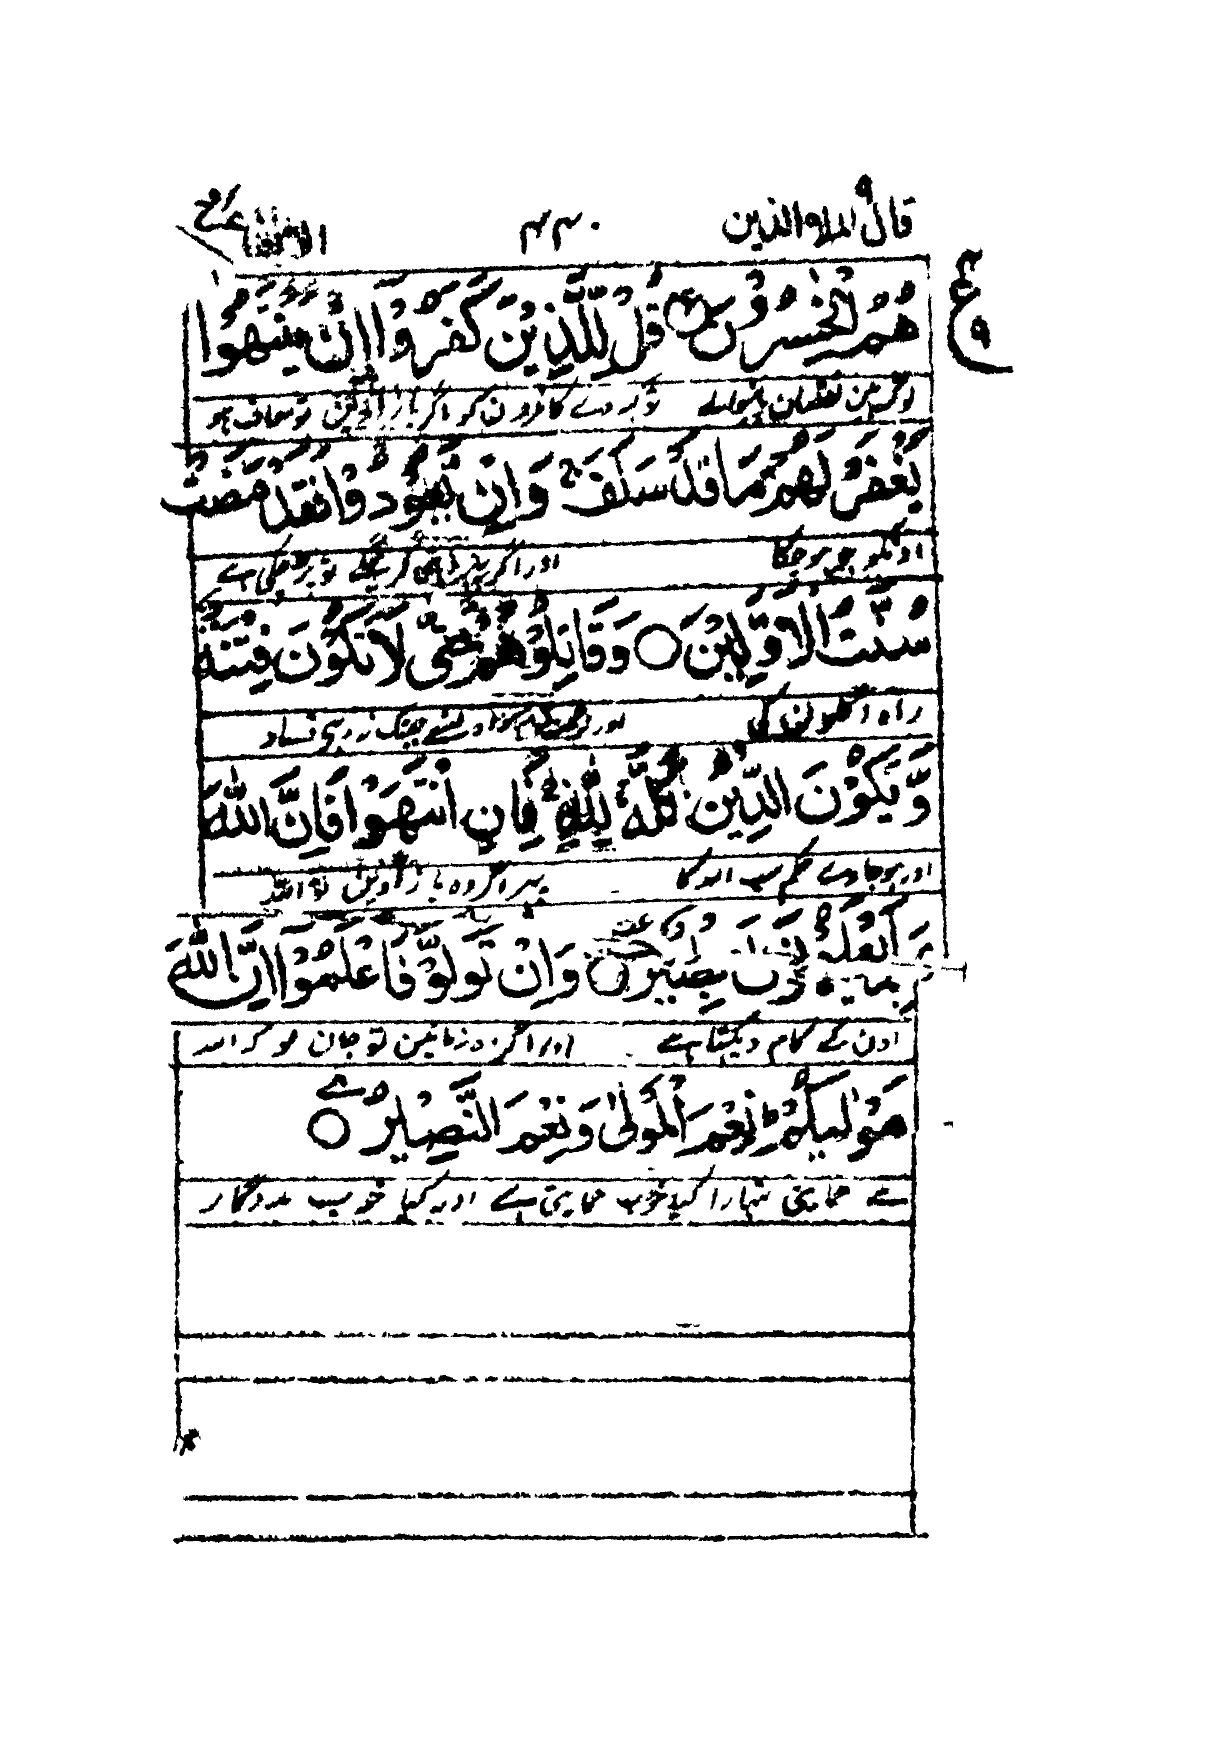 قال الملا۹ والذین ۴۴۰ الانفال
هُمُ الْخٰسِرُوْنَ ○ قُلْ لِّلَّذِیْنَ كَفَرُوْۤا اِنْ یَّنْتَهُوْا
لوگ ہین نقصان پانیوالے تو کہدے کافرون کو اگر باز آوین تو معاف ہو
یُغْفَرْ لَهُمْ مَّا قَدْ سَلَفَ ۚ وَاِنْ یَّعُوْدُوْا فَقَدْ مَضَتْ
اونکو جو ہوچکا اور اگر پھر کرینگے تو پڑ چکی ہے
سُنَّتُ الْاَوَّلِیْنَ ○ وَقَاتِلُوْهُمْ حَتّٰی لَا تَكُوْنَ فِتْنَةٌ
راہ اگلونکی اور لڑتے رہو اونسے جبتک نہ رہے فساد
وَّیَكُوْنَ الدِّیْنُ كُلُّهٗ لِلّٰهِ ۚ فَاِنِ انْتَهَوْا فَاِنَّ اللّٰهَ
اور ہوجاوے حکم سب اللہ کا پہر اگر وہ باز آوین تو اللہ
بِمَا یَعْمَلُوْنَ بَصِیْرٌ ○ وَاِنْ تَوَلَّوْا فَاعْلَمُوْۤا اَنَّ اللّٰهَ
اون کے کام دیکہتا ہے اور اگر وہ نہ مانین تو جان لو کہ اللہ
مَوْلٰىكُمْ ؕ نِعْمَ الْمَوْلٰی وَنِعْمَ النَّصِیْرُ ○
ہے حمایتی تمہارا کیا خوب حمایتی ہے اور کیا خوب مددگار